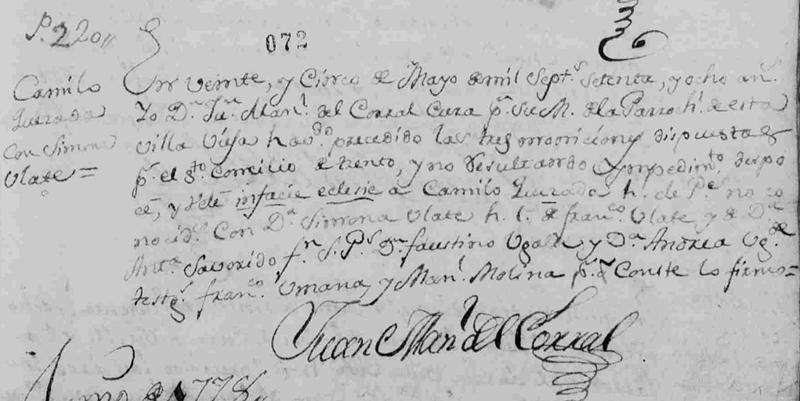 P. 220,,
072
Camilo
Quezada
con Simona
Vlate =
En veinte, y Cinco de Mayo de mil Sept.s Setenta, y ocho an.s
Yo Dn. Ju.n Man.l del Corral Cura p.r Su M. de la Parroch.l de esta
Villa Vieja hav.do precedido las tres moniciones dispuestas
p.r el S.to Concilio de trento, y no Resultando ympedim.to despo
cé, y velé infacie eclesie a Camilo Quezada h. de P.s no co
nocid.s Con D.a Simona Vlate h. l. de fran.co Vlate y de D.a
Ant.a Saborido f.n S. P.s Dn. faustino Vgalde y D.a Andrea Ug.de
testg.s fran.co Umana, y Man.l Molina p.a q. Conste lo firmo =
Juan Man.l del Corral
de 1778